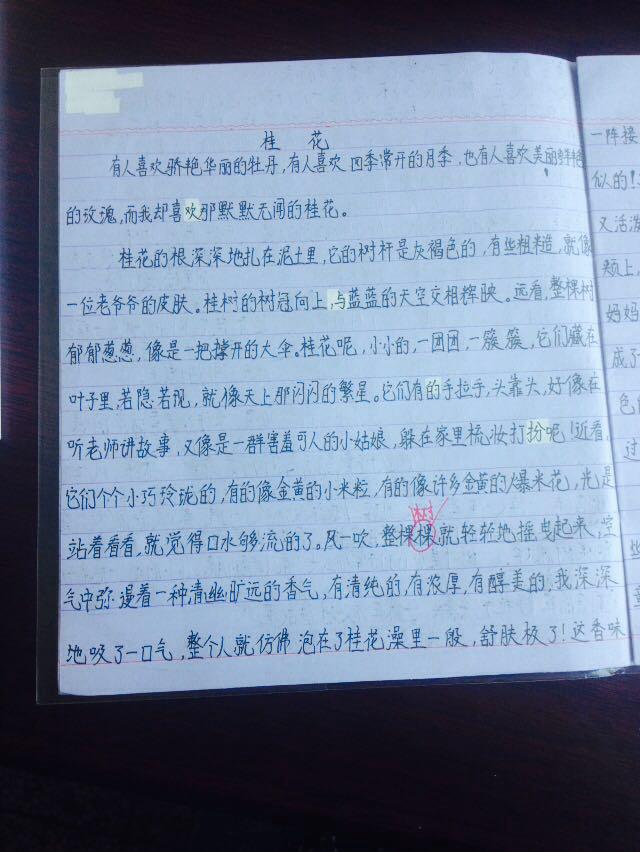 桂花
有人喜欢骄艳华丽的牡丹,有人喜欢四季常开的月季,也有人喜欢美丽鲜艳
的玫瑰,而我却喜欢那默默无闻的桂花。
桂花的根深深地扎在泥土里,它的树杆是灰褐色的,有些粗糙,就像
一位老爷爷的皮肤。桂树的树冠向上,与蓝蓝的天空交相辉映。远看,整棵树
郁郁葱葱,像是一把撑开的大伞。桂花呢,小小的,一团团,一簇簇,它们藏在
叶子里,若隐若现,就像天上那闪闪的繁星。它们有的手拉手,头靠头,好像在
听老师讲故事,又像是一群害羞可人的小姑娘,躲在家里梳妆打扮呢!近看,
它们个个小巧玲珑的,有的像金黄的小米粒,有的像许多金黄的爆米花,光是
站着看看,就觉得口水够流的了。风一吹,整棵树就轻轻地摇曳起来,空
气中弥漫着一种清幽旷远的香气,有清纯的,有浓厚,有醇美的,我深深
地吸了一口气,整个人就仿佛泡在了桂花澡里一般,舒肤极了!这香味
一阵接
似的!
又活泼
颊上,
妈妈
成了
色的
过
些